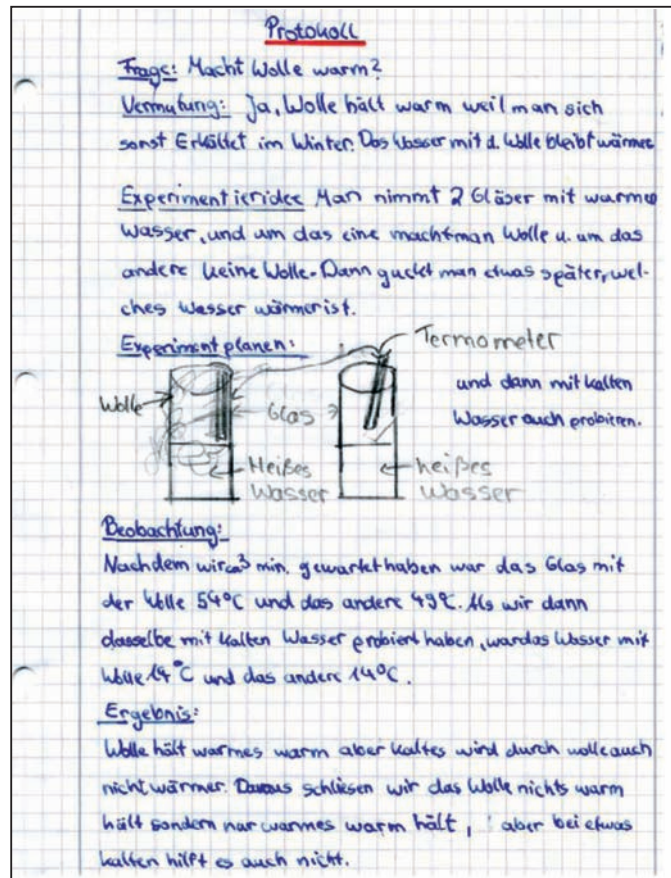 Protokoll
Frage: Macht Wolle warm?
Vermutung: Ja, Wolle hält warm weil man sich
sonst Erkältet im Winter. Das Wasser mit d. Wolle bleibt wärmer
Experimentieridee Man nimmt 2 Gläser mit warmen
Wasser, und um das eine macht man Wolle u. um das
andere keine Wolle. Dann guckt man etwas später, wel-
ches Wasser wärmer ist.
Experiment planen:
Termometer
Wolle
Glas
und dann mit kalten
Wasser auch probieren.
Heißes
Wasser
heißes
Wasser
Beobachtung:
Nachdem wir ca 3 min. gewartet haben war das Glas mit
der Wolle 54°C und das andere 49°C. Als wir dann
dasselbe mit kalten Wasser probiert haben, war das Wasser mit
Wolle 14°C und das andere 14°C.
Ergebnis:
Wolle hält warmes warm aber kaltes wird durch wolle auch
nicht wärmer. Daraus schliesen wir das Wolle nichts warm
hält sondern nur warmes warm hält, aber bei etwas
kalten hilft es auch nicht.